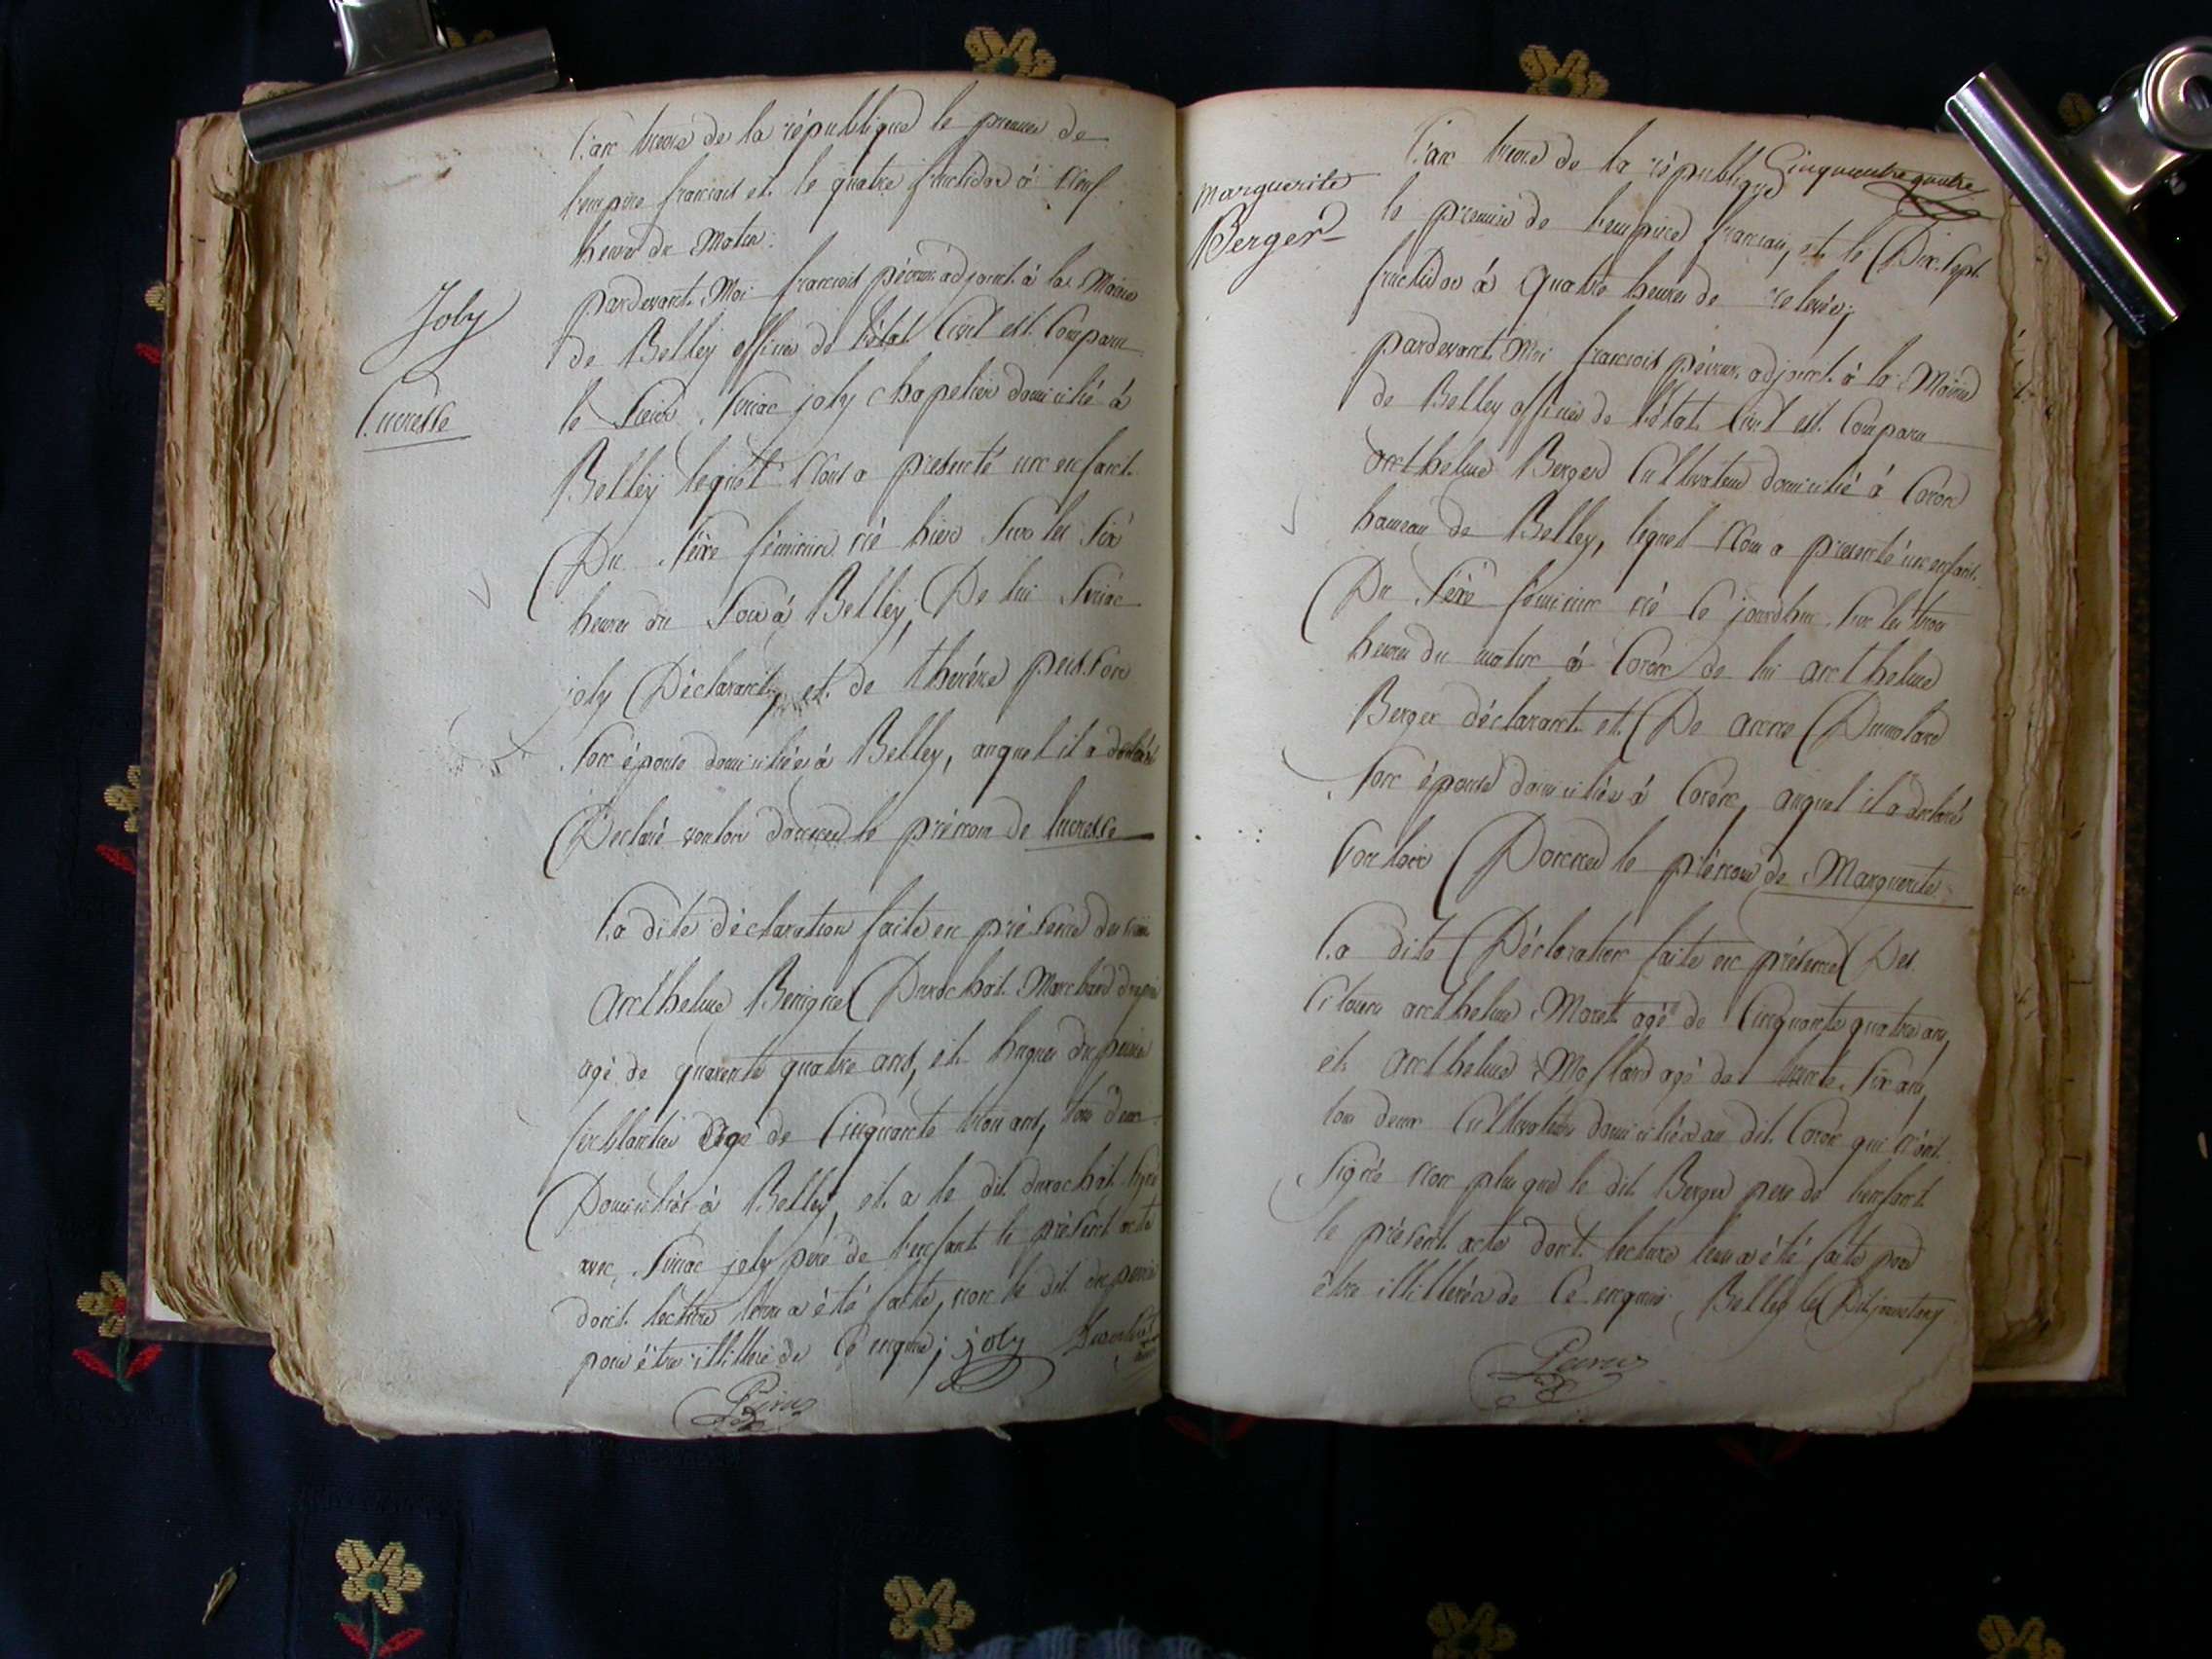 Joly
Lucresse
L'an treize de la république le premier de
l'empire français et le quatre fructidor à Neuf
heures du Matin:
pardevant Moi françois péirus adjoint à la Mairie
de Belley officier de l'état Civil est Comparu
le Sieur joly chapelier domicilié à
Belley lequel Nous a présenté un enfant
Du Sexe féminin né hier Sur les Six
heures du Soir à Belley, De lui
joly Déclarant, et de thérèse
Son épouse domiciliés à Belley, auquel il a
Déclaré vouloir donner le prénom de lucresse
La dite déclaration faite en présence des
Anthelme Benigne Durochat Marchand
agé de quarente quatre ans, et hugues
ferblantier agé de Cinquante trois ans, tous deux
Domiciliés à Belley, et a le dit durochat signé
avec joly père de l'enfant le présent acte
dont lecture leur a été faite, non le dit
pour être illitteré de Ce enquis; joly
Péirus
Cinquante quatre
Marguerite
Berger
L'an treize de la république
le premier de l'empire français, et le Dix Sept
fructidor à Quatre heures de relevée;
pardevant Moi françois péirus adjoint à la Mairie
de Belley officier de l'état Civil est Comparu
anthelme Berger Cultivateur domicilié à Coron
hameau de Belley, lequel Nous a présenté un enfant
Du Sexe féminin né Ce jourdhui Sur les trois
heures du matin à Coron de lui anthelme
Berger déclarant et De anne Dumolard
Son épouse domiciliés à Coron, auquel il a declaré
Vouloir Donner le prénom de Marguerite
La dite Déclaration faite en présence Des
Citoyens anthelme Moret agé de Cinquante quatre ans,
et anthelme Mollard agé de trente Six ans,
tous deux Cultivateurs domiciliés au dit Coron qui n'ont
Signés non plus que le dit Berger pere de l'enfant
le présent acte dont lecture leur a été faite pour
être illitterés de Ce enquis Belley les Dits jour et an
Péirus